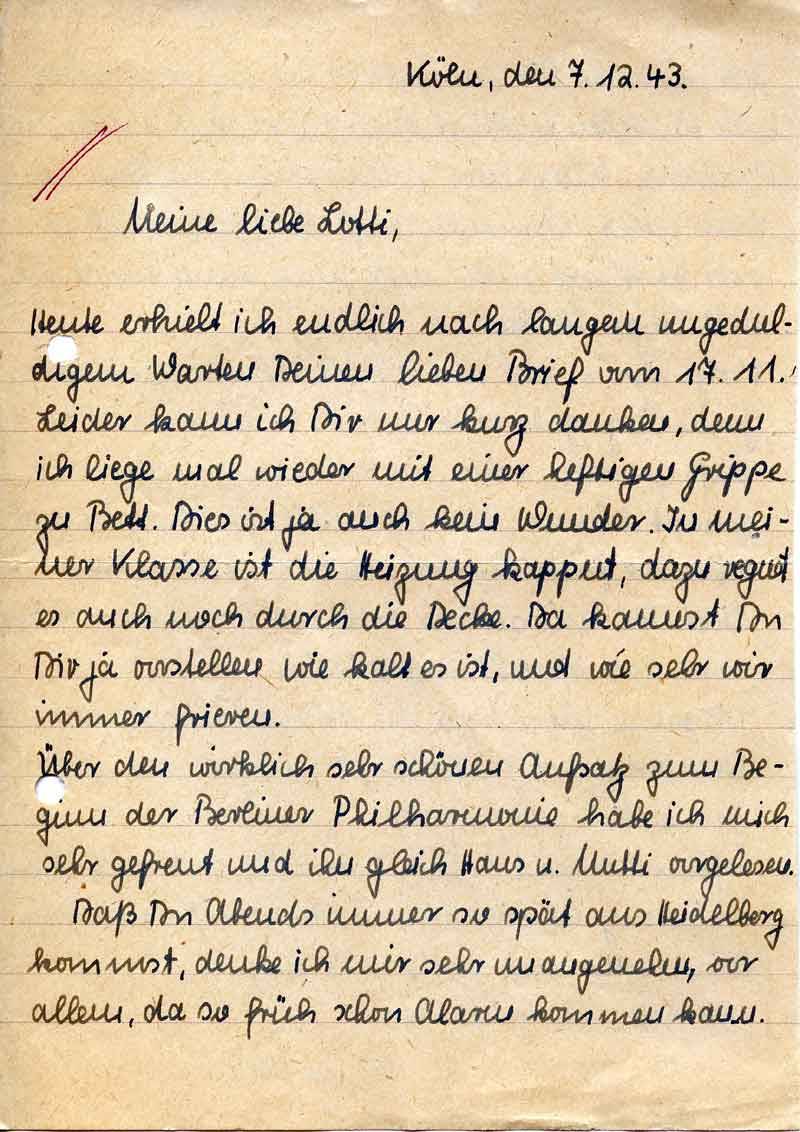 Köln, den 7.12.43.
Meine liebe Lotti,
Heute erhielt ich endlich nach langem ungedul-
digem Warten Deinen lieben Brief vom 17.11.
Leider kann ich Dir nur kurz danken, denn
ich liege mal wieder mit einer heftigen Grippe
zu Bett. Dies ist ja auch kein Wunder. In mei-
ner Klasse ist die Heizung kapput, dazu regnet
es auch noch durch die Decke. Da kannst Du
Dir ja vorstellen wie kalt es ist, und wie sehr wir
immer frieren.
Über den wirklich sehr schönen Aufsatz zum Be-
ginn der Berliner Philharmonie habe ich mich
sehr gefreut und ihn gleich Hans u. Mutti vorgelesen.
Daß Du Abends immer so spät aus Heidelberg
kommst, denke ich mir sehr unangenehm, vor
allem, da so früh schon Alarm kommen kann.